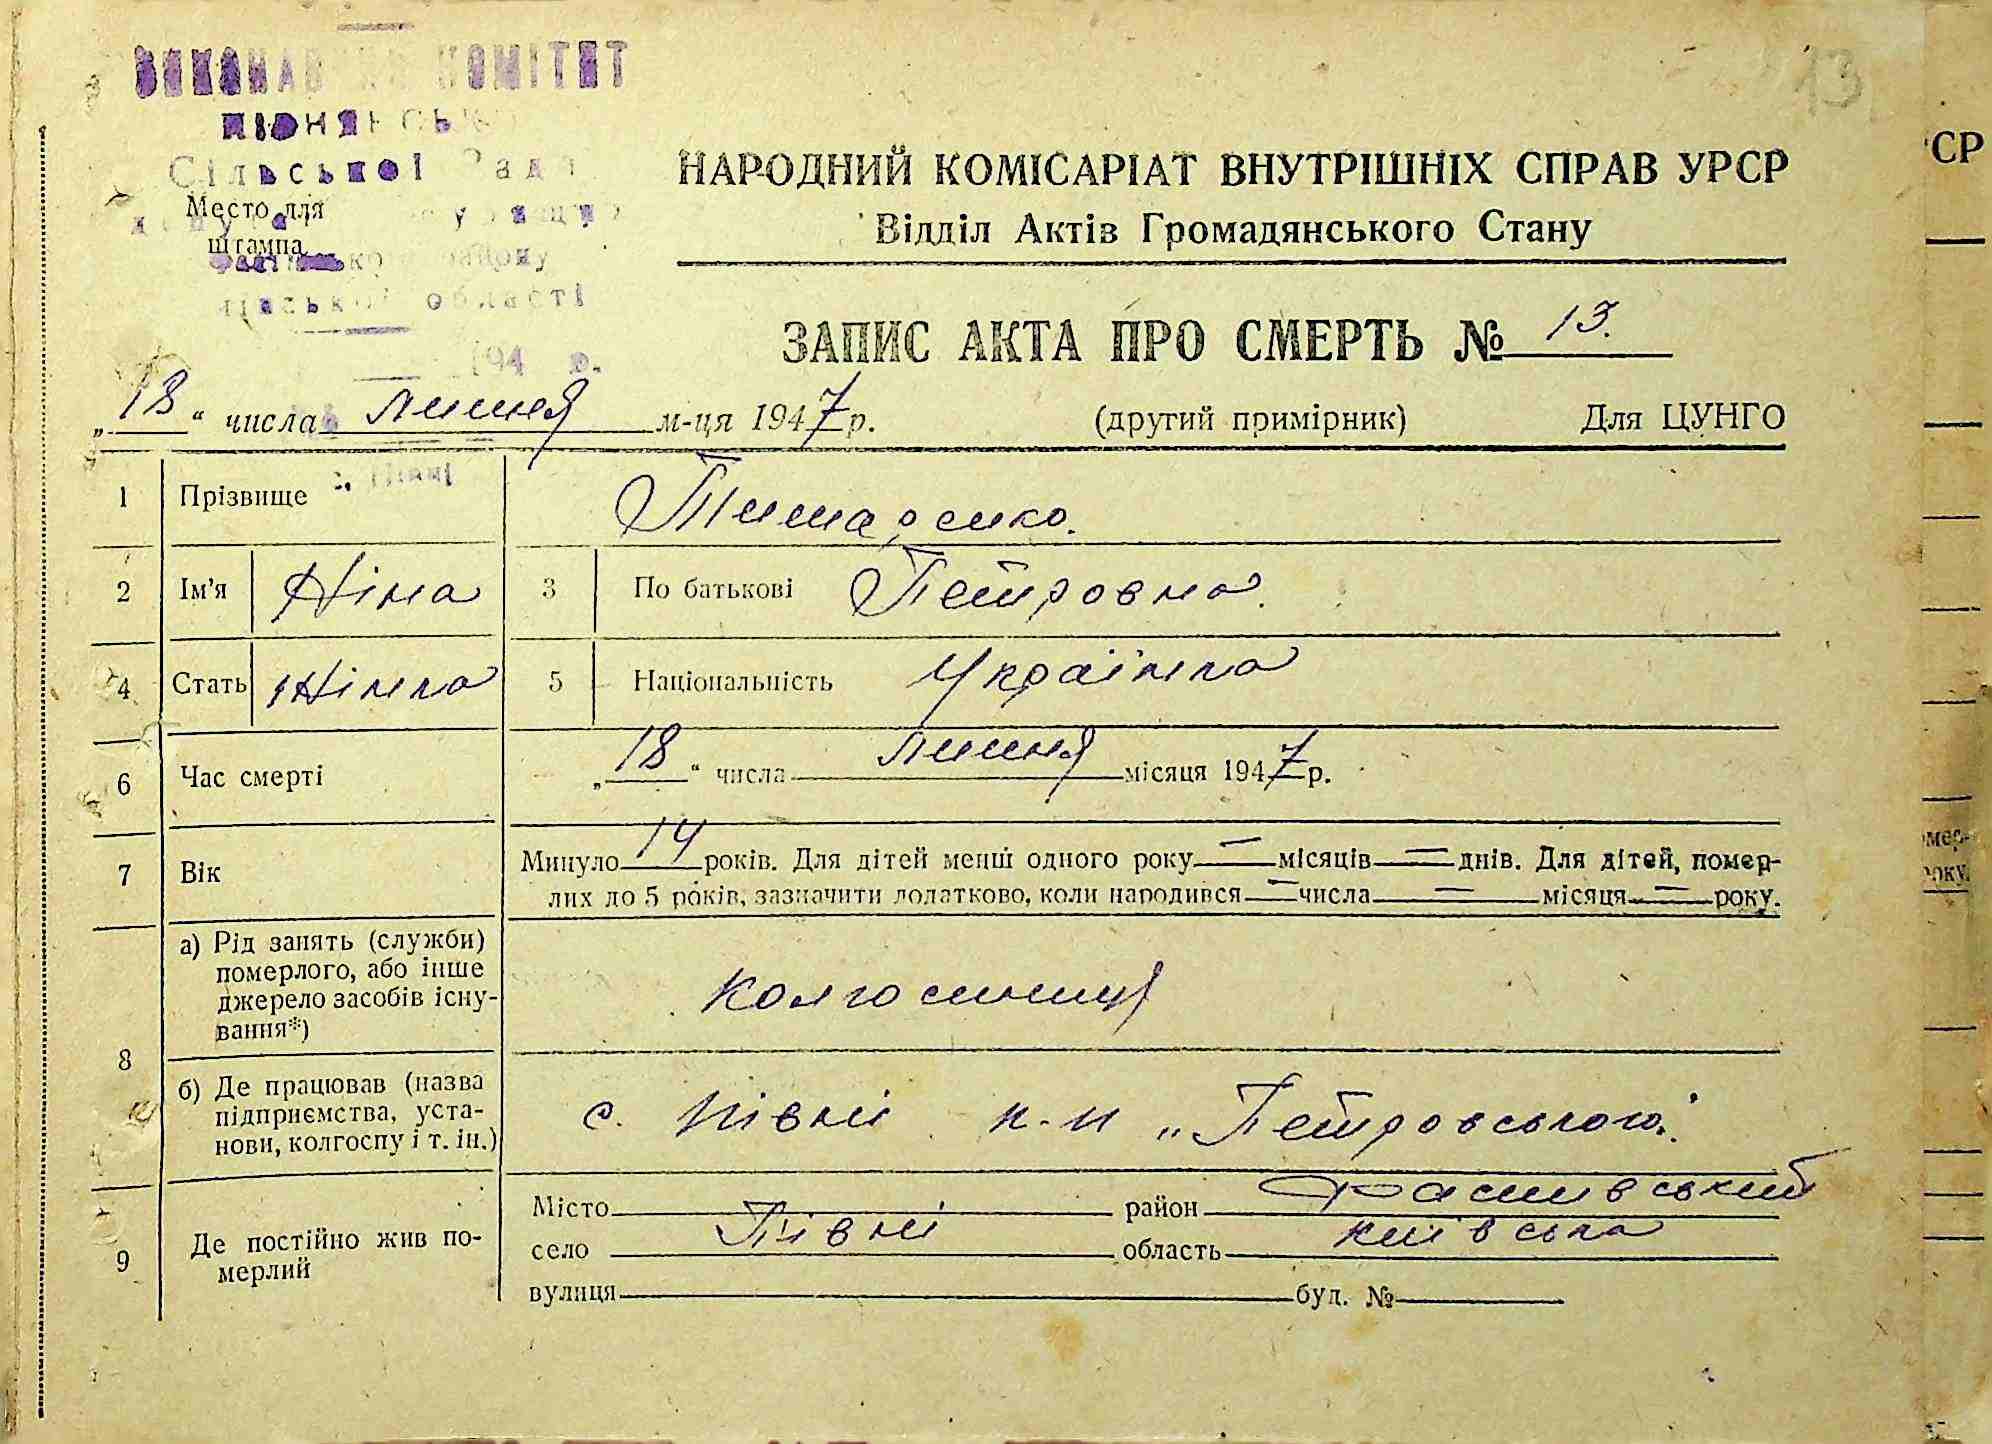 13
КОМІТЕТ
Сільської Ради
Место для
штампа
району
області
194 р.
НАРОДНИЙ КОМІСАРІАТ ВНУТРІШНІХ СПРАВ УРСР
Відділ Актів Громадянського Стану
ЗАПИС АКТА ПРО СМЕРТЬ № 13.
„18“ числа липня м-ця 1947 р. (другий примірник) Для ЦУНГО
1 Прізвище
2 Ім'я Ніна 3 По батькові Петровна.
4 Стать жінка 5 Національність Українка
6 Час смерті „18“ числа липня місяця 1947 р.
7 Вік Минуло 14 років. Для дітей менш одного року — місяців — днів. Для дітей, помер-
лих до 5 років, зазначити додатково, коли народився — числа — місяця — року.
8 а) Рід занять (служби)
померлого, або інше
джерело засобів існу-
вання*) колгоспниця
б) Де працював (назва
підприємства, уста-
нови, колгоспу і т. ін.) с. Півні к-п „Петровського".
9 Де постійно жив по-
мерлий
Місто район Фастівський
село Півні область київська
вулиця буд. №
СР